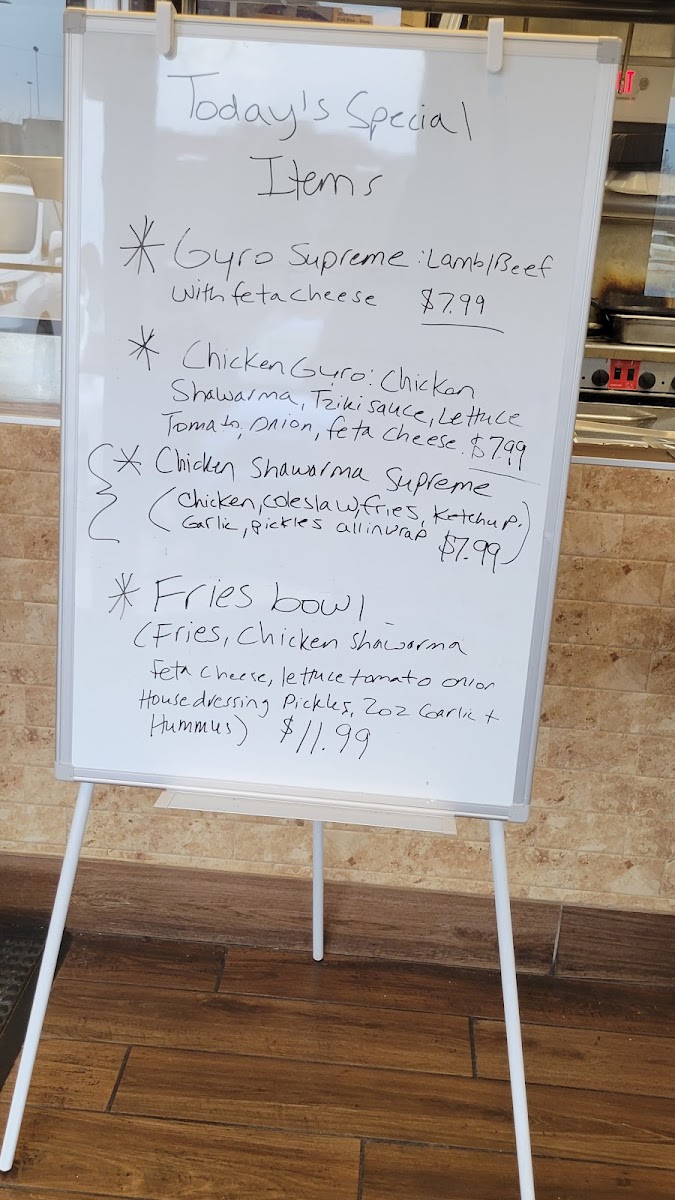 Today's Special
Items
* Gyro Supreme : Lamb/Beef
with feta cheese $7.99
* Chicken Gyro: Chicken
Shawarma, Tziki sauce, Lettuce
Tomato, Onion, feta cheese. $7.99
* Chicken Shawarma Supreme
(Chicken, coleslaw, fries, Ketchup.
Garlic, pickles all in wrap $7.99)
* Fries bowl
(Fries, Chicken shawarma
feta cheese, lettuce tomato onion
House dressing Pickles, 2oz Garlic +
Hummus) $11.99